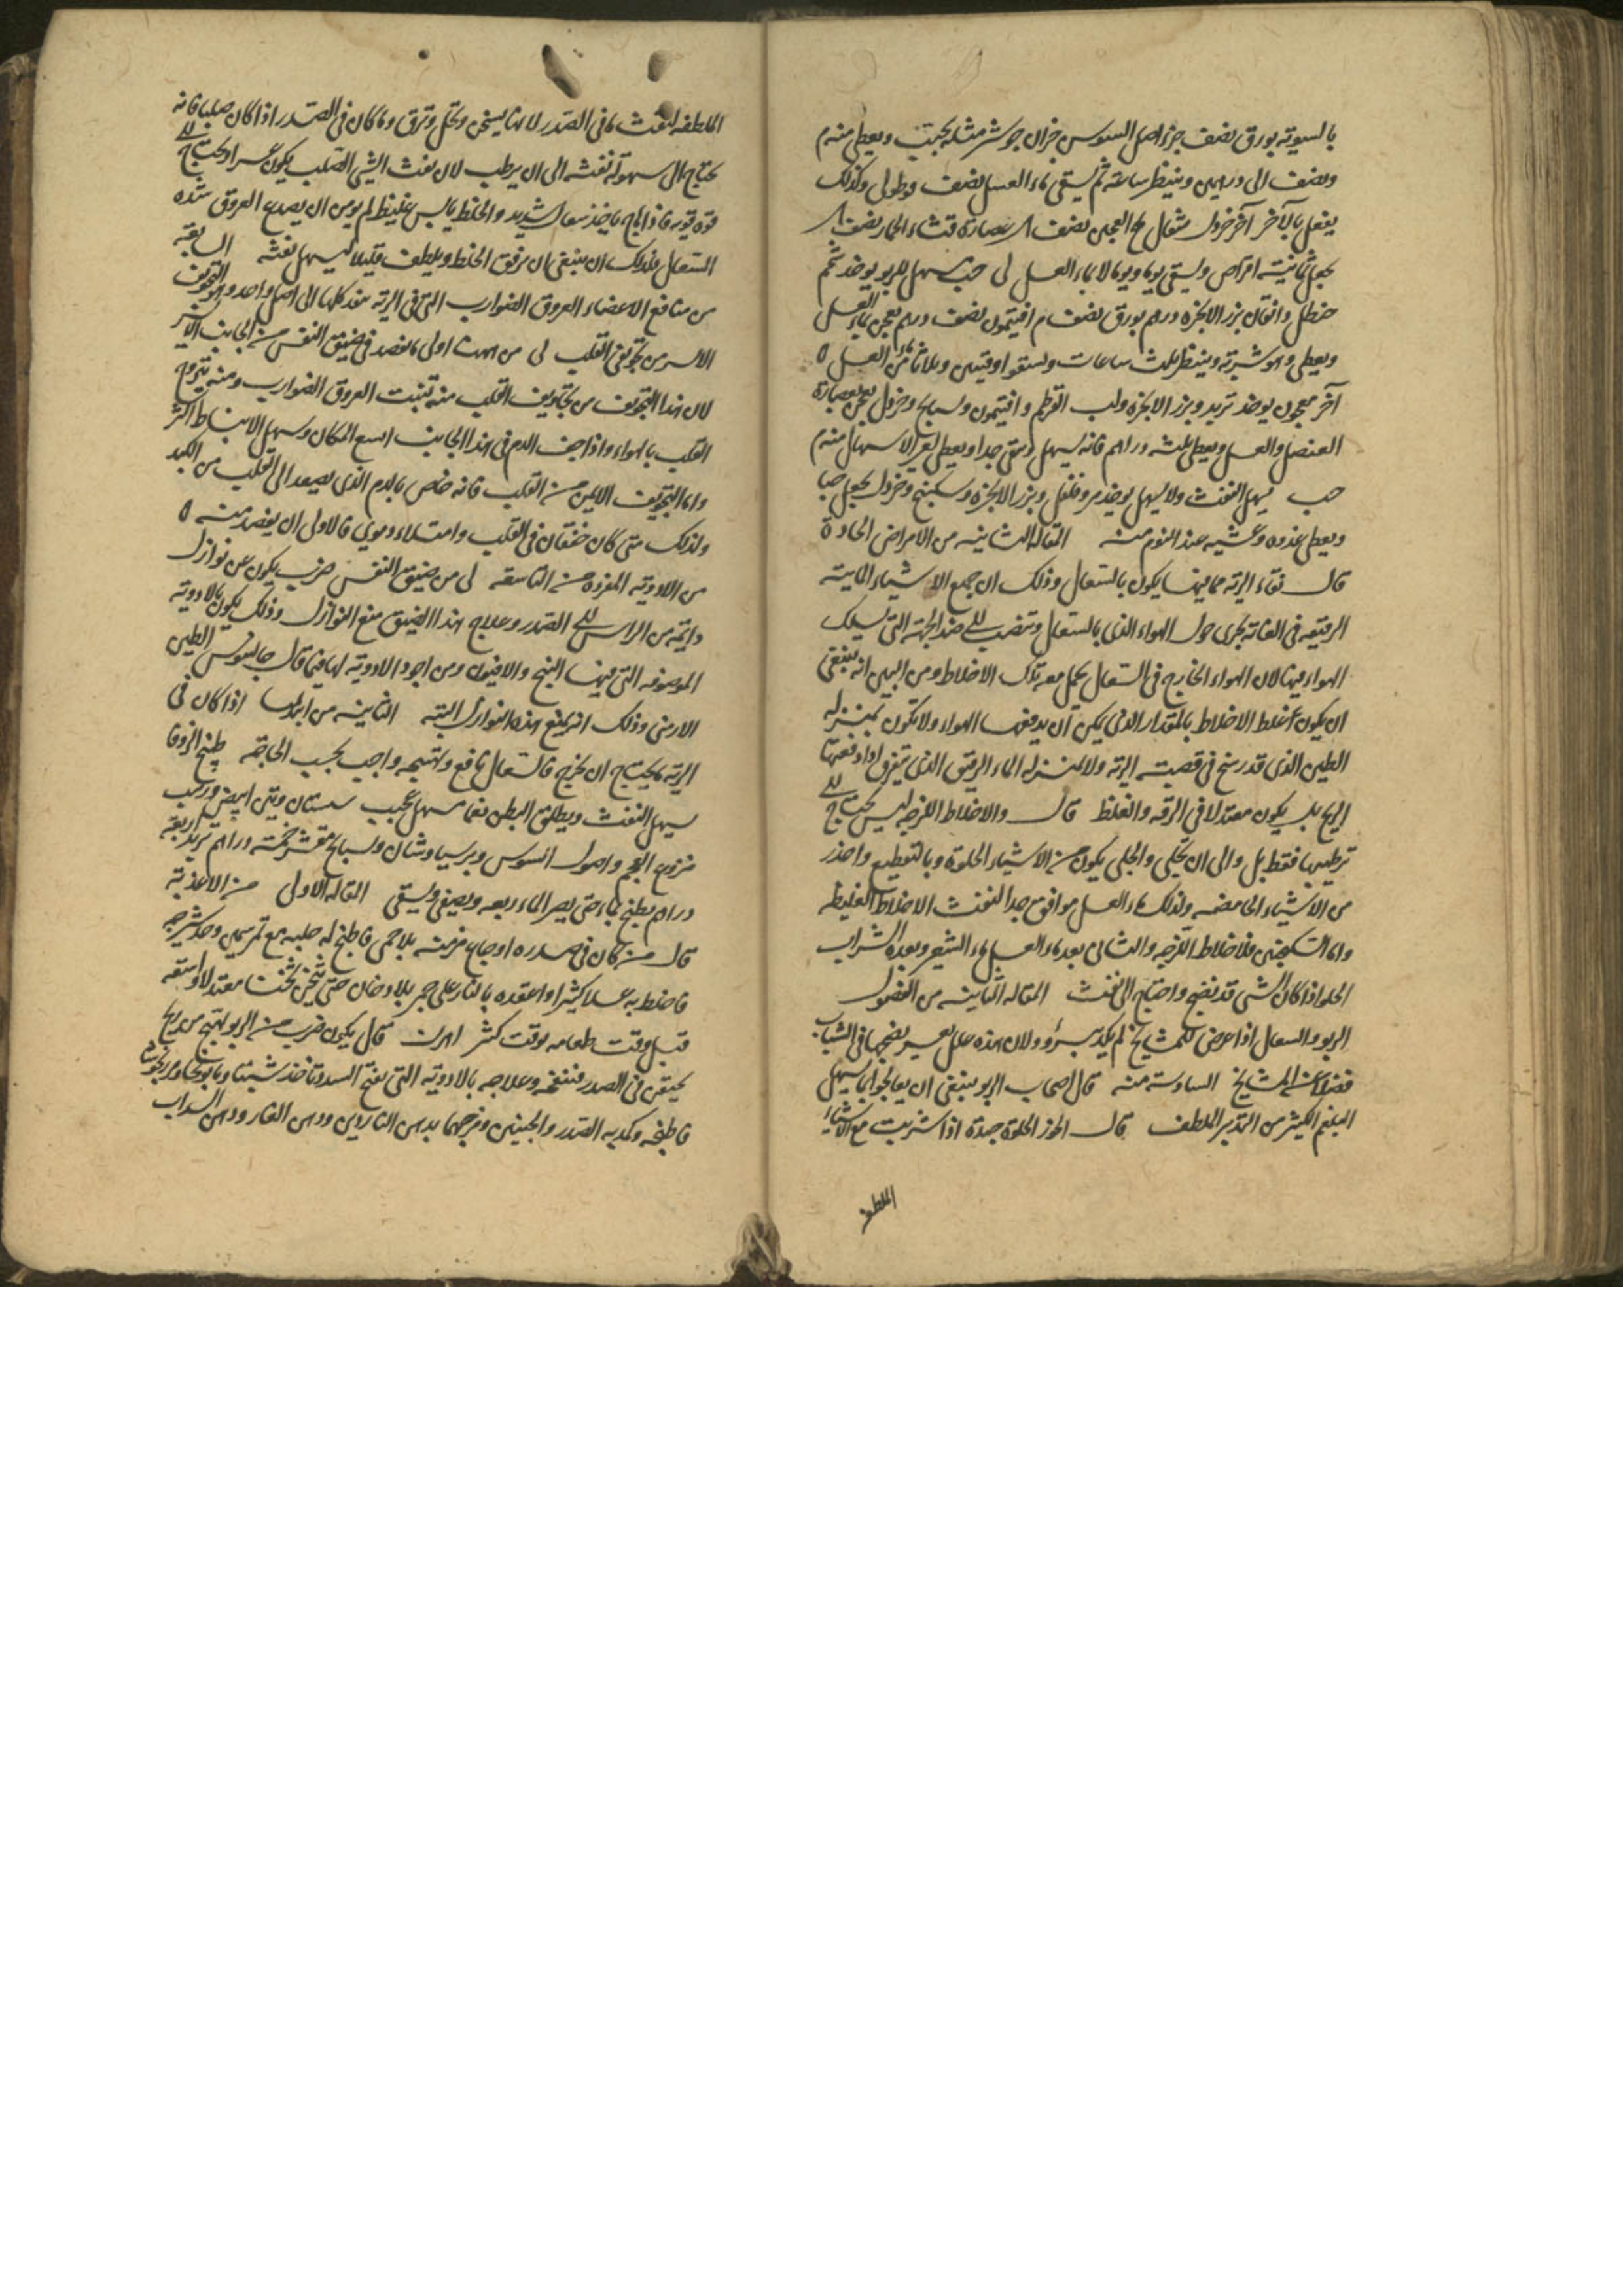 بالسوية بورق نصف جزء اصل السوسن جزان جوشر مثله يحبب ويعطى منه م
ونصف الى درهمين وينتظر ساعة ثم يسقى ماء العسل نصف قوطولى وكذلك
يفعل بالآخر آخر خردل مثقال ملح العجين نصف عصارة قثاء الحمار نصف
يجعل ثمانية اقراص ويسقى يوما ويوما لا بماء العسل لى حب يسهل للربو يوخذ شحم
حنظل وانفاق بزر الانجره درهم بورق نصف م افتيمون نصف درهم يعجن بماء العسل
ويعطى وهو شربة وينتظر ثلث ساعات ويسقوا اوقيتين وثلاثا من ماء العسل ٥
آخر معجون يوخذ تربد وبزر الانجره ولب القرطم وافتيمون وبسبايج وخردل يعجن بعصارة
العنصل والعسل ويعطى ثلثه دراهم فانه يسهل وينقى جدا ويعطى لعسر الاسهال منه م
حب يسهل النفث ولا يسهل يوخذ مر وفلفل وبزر الانجره وسكبينج وخردل يجعل حبا
ويعطى غدوه وعشيه عند النوم منه المقاله الثانيه من الامراض الحادة
قال نقاء الرئة مما فيها يكون بالسعال وذلك ان جميع الاشياء المايية
الرقيقه فى الغاية يجرى حول الهواء الذى بالسعال وتنصب الى ضد الجهة التى يسلك
الهواء فيها لان الهواء الخارج فى السعال يحمل معه تلك الاخلاط ومن البين انه ينبغى
ان يكون غلظ الاخلاط بالمقدار الذى يمكن ان يدفعها الهواء ولا تكون بمنزله
الطين الذى قد رسخ فى قصبة الرئة ولا بمنزله الماء الرقيق الذى يتفرق اذا دفعتها
الريح بل يكون معتدلا فى الرقه والغلظ قال والاخلاط اللزجه ليس يحتاج الى
ترطيبها فقط بل والى ان تجلى والجلى يكون من الاشياء الحلوة وبالتقطيع واحذر
من الاشياء الحامضه ولذلك ماء العسل موافق جدا لنفث الاخلاط الغليظه
واما السكنجبين فللاخلاط اللزجه والتالى بعد ماء العسل ماء الشعير وبعده الشراب
الحلو اذا كان الشى قد نضج واحتاج الى نفث المقاله الثانيه من الفصول
الربو والسعال اذا عرض للمشايخ لم يكد يبرؤ ولان هذه علل يعسر نضجها فى الشباب
فضلا عن المشايخ السادسة منه قال اصحاب الربو ينبغى ان يعالجوا بما يسهل
البلغم الكثير من التدبير الملطف قال الخمر الحلوة جيدة اذا شربت مع الاشياء
الملطفه
الملطفه لنفث ما فى الصدر لانها يسخن وتحلل وترق وما كان فى الصدر اذا كان صلبا فانه
يحتاج الى سهولة نفثه الى ان يرطب لان نفث الشى الصلب يكون عسرا ويحتاج الى
قوه قويه فاذا هاج ياخذ سعال شديد والخلط يابس غليظ لم يومن ان يصدع العروق شده
السعال فلذلك ان ينبغى ان يرقق الخلط ويلطف قليلا ليسهل نفثه السابعة
من منافع الاعضاء العروق الضوارب التى فى الرئة عند كلها الى اصل واحد وهو التجويف
الايسر من تجويفى القلب لى من ههنا اولى ما يفصد فى ضيق النفس من الجانب الايسر
لان هذا التجويف من تجاويف القلب منه تنبت العروق الضوارب ومنه يتروح
القلب بالهواء واذا جف الدم فى هذا الجانب اتسع المكان وسهل الانبساط اكثر
واما التجويف الايمن من القلب فانه خاص بالدم الذى يصعد الى القلب من الكبد
ولذلك متى كان خفقان فى القلب وامتلاء دموي فالاولى ان يفصد منه ٥
من الادوية المفرده من التاسعة لى من ضيق النفس ضرب يكون عن نوازل
دايمة من الراس الى الصدر وعلاج هذا الضيق منع النوازل وذلك يكون بالادوية
الموصوفه التى فيها البنج والافيون ومن اجود الادوية لها فيما قال جالينوس الطين
الارمنى وذلك انه يمنع هذه النوازل البتة الثانيه من ابيذيميا اذا كان فى
الرئة ما يحتاج ان يخرج فالسعال نافع وتهييجه واجب بحسب الحاجة طبيخ الزوفا
يسهل النفث ويطلق البطن نعما سهل عجيب سبستان وتين ابيض وزبيب
منزوع العجم واصول السوس وبرسياوشان وبسبايج مقشر خمسة دراهم تربد اربعة
دراهم يطبخ بماء حتى يصير الماء ربعه ويصفى ويسقى المقاله الاولى من الاغذية
قال من كان فى صدره اوجاع مزمنه بلا حمى فاطبخ له حلبه مع تمر سمين وخذ شيرجه
فاخلط به عسلا كثيرا واعقده بالنار على جمر بلا دخان حتى يثخن ثخنا معتدلا واسقه
قبل وقت طعامه بوقت كثير اهرن قال يكون ضرب من الربو يهيج من ريح
يحتقن فى الصدر فتنفخه وعلاجه بالادوية التى يفتح السدد تاخذ شبثا وبابونجا ومرزنجوشا
فاطبخه وكمد به الصدر والجنبين ومرخهما بدهن الناردين ودهن الغار ودهن السداب